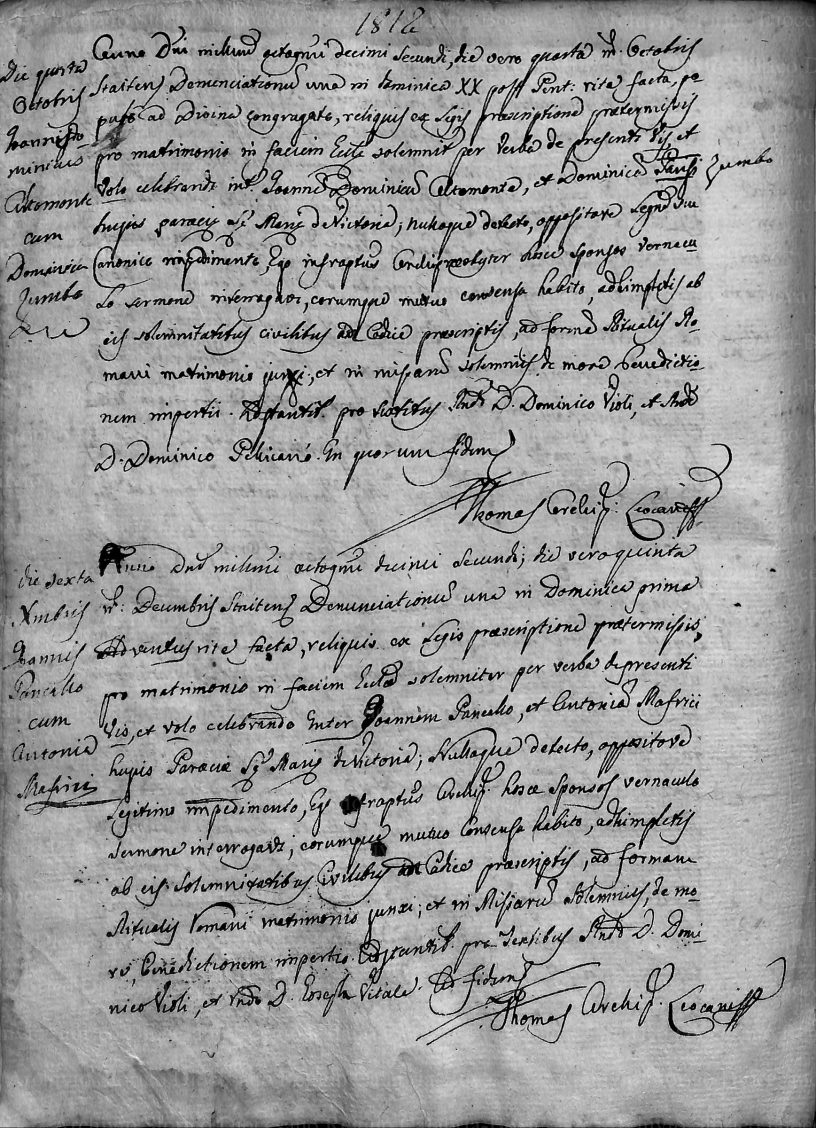 1812
Die quarta
Octobris
Joannis Do
minicus
Altomonte
cum
Dominica
Zumbo
Anno Dni millmi octogmi decimi secundi, die vero quarta m. Octobris
Staitens Denunciationum una in Dominica XX post Pent: rite facta, po
pulo ad Divina congregato, reliquis ex Legis præscriptione prætermissis
pro matrimonio in faciem Eccle solemnit per verba de presenti Vis, et
Volo celebrando int Joannem Dominicum Altomonte, et Dominicam Zumbo
hujus paræciæ S. Mariæ de Victoria; nulloque detecto, oppositove Legmo seu
Canonico impedimento, Ego infraptus Archipresbyter hosce sponsos vernacu
lo sermone interrogavi, eorumque mutuo consensu habito, adhimpletis ab
eis solemnitatibus civilibus a Codice præscriptis, ad formam Ritualis Ro-
mani matrimonio junxi, et in missarum solemniis de more Benedictio-
nem impertii. Adstantib. pro testibus D. Dominico Violi, et
D. Dominico Pelicanò. In quorum fidem
Thomas Archip. Leocani
die sexta
Xmbris
Joannis
Pancallo
cum
Antonia
Mafrici
Anno Dni millmi octogmi decimi secundi; die vero quinta
m: Decembris Staitens Denunciationum una in Dominica prima
Adventus rite facta, reliquis ex Legis præscriptione prætermissis,
pro matrimonio in faciem Eccle solemniter per verba de presenti
Vis, et Volo celebrando Inter Joannem Pancallo, et Antoniam Mafrici
hujus Paræciæ S. Mariæ de Victoria; Nulloque detecto, oppositove
Legitimo impedimento, Ego infraptus Archip. hosce Sponsos vernaculo
Sermone interrogavi; eorumque mutuo Consensu habito, adhimpletis
ab eis solemnitatibus Civilibus a Codice præscriptis, ad formam
Ritualis Romani matrimonio junxi; et in Missarum Solemniis, de mo-
re, Benedictionem impertio. Adstantib. pro Testibus D. Domi-
nico Violi, et D. Joseph Vitale. Ad fidem
Thomas Archip. Leocani